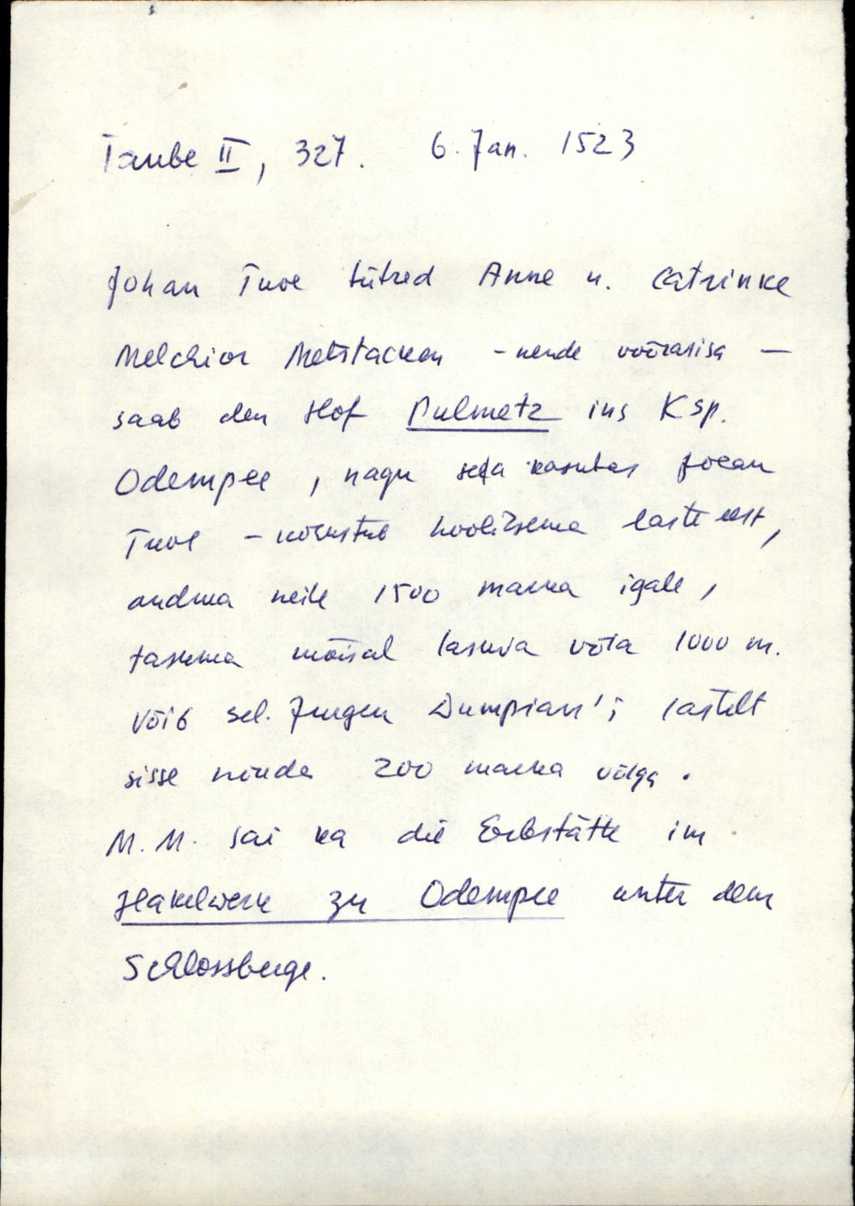 Taube II, 327. 6. Jan. 1523
Johan Tuve tütred Anne u. Catrinke
Melchior Metstacken - nende võõrasisa -
saab den Hof Pulmetz ins Ksp.
Odempee, nagu seda kasutas Johan
Tuve - kohustub hoolitsema laste eest,
andma neile 1500 marka igale,
tasuma mõisal lasuva võla 1000 m.
võib sel. Jurgen lastelt
sisse nõuda 200 marka võlga.
M. M. sai ka die Erbstätte im
Hakelwerk zu Odempee unter dem
Schlossberge.